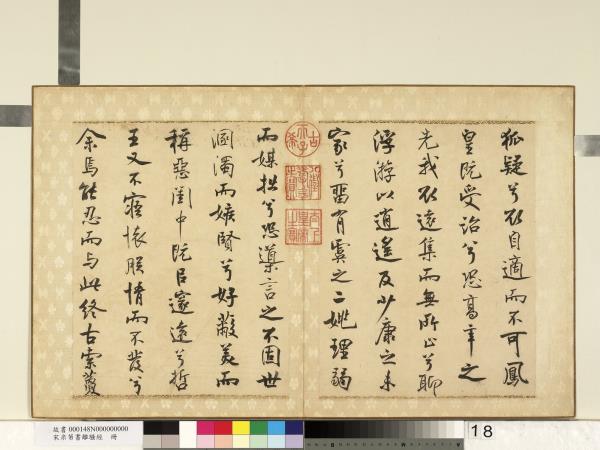 狐疑兮欲自適而不可鳳
皇既受詒兮恐高辛之
先我欲遠集而無所止兮聊
浮游以逍遙及少康之未
家兮留有虞之二姚理弱
古希天子
八徵耄念之寶
太上皇帝之寶
而媒拙兮恐導言之不固世
溷濁而嫉賢兮好蔽美而
稱惡閨中既已邃遠兮哲
王又不寤懷朕情而不發兮
余焉能忍而与此終古索藑
故書 000148N000000000
宋米芾書離騷經 冊
18